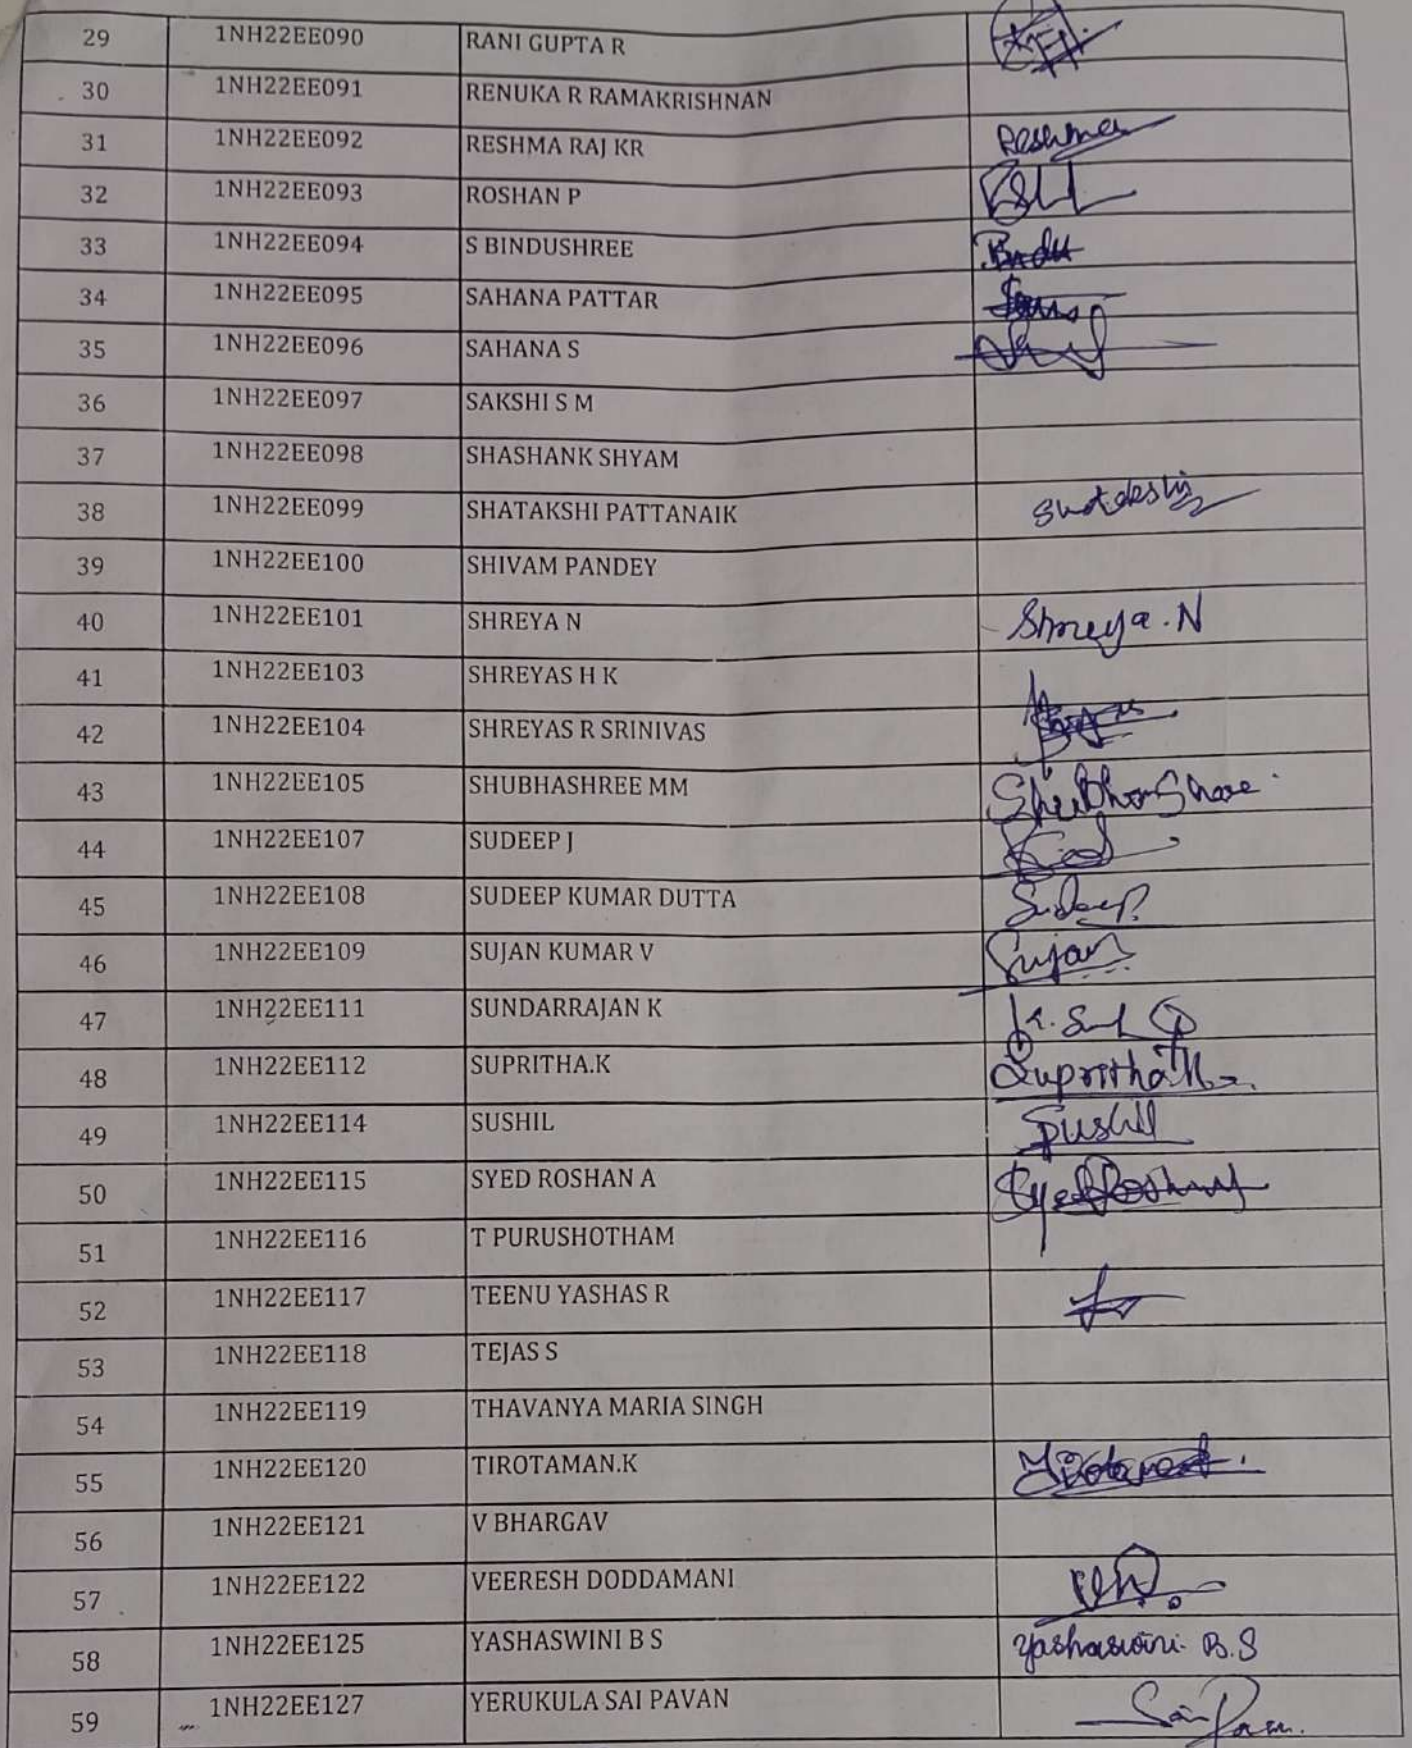 29 1NH22EE090 RANI GUPTA R
30 1NH22EE091 RENUKA R RAMAKRISHNAN
31 1NH22EE092 RESHMA RAJ KR Reshma
32 1NH22EE093 ROSHAN P
33 1NH22EE094 S BINDUSHREE
34 1NH22EE095 SAHANA PATTAR
35 1NH22EE096 SAHANA S
36 1NH22EE097 SAKSHI S M
37 1NH22EE098 SHASHANK SHYAM
38 1NH22EE099 SHATAKSHI PATTANAIK
39 1NH22EE100 SHIVAM PANDEY
40 1NH22EE101 SHREYA N Shreya.N
41 1NH22EE103 SHREYAS H K
42 1NH22EE104 SHREYAS R SRINIVAS
43 1NH22EE105 SHUBHASHREE MM
44 1NH22EE107 SUDEEP J
45 1NH22EE108 SUDEEP KUMAR DUTTA Sudeep
46 1NH22EE109 SUJAN KUMAR V Sujan
47 1NH22EE111 SUNDARRAJAN K
48 1NH22EE112 SUPRITHA.K Supritha K
49 1NH22EE114 SUSHIL Sushil
50 1NH22EE115 SYED ROSHAN A Syed Roshan
51 1NH22EE116 T PURUSHOTHAM
52 1NH22EE117 TEENU YASHAS R
53 1NH22EE118 TEJAS S
54 1NH22EE119 THAVANYA MARIA SINGH
55 1NH22EE120 TIROTAMAN.K
56 1NH22EE121 V BHARGAV
57 1NH22EE122 VEERESH DODDAMANI
58 1NH22EE125 YASHASWINI B S Yashaswini B.S
59 1NH22EE127 YERUKULA SAI PAVAN